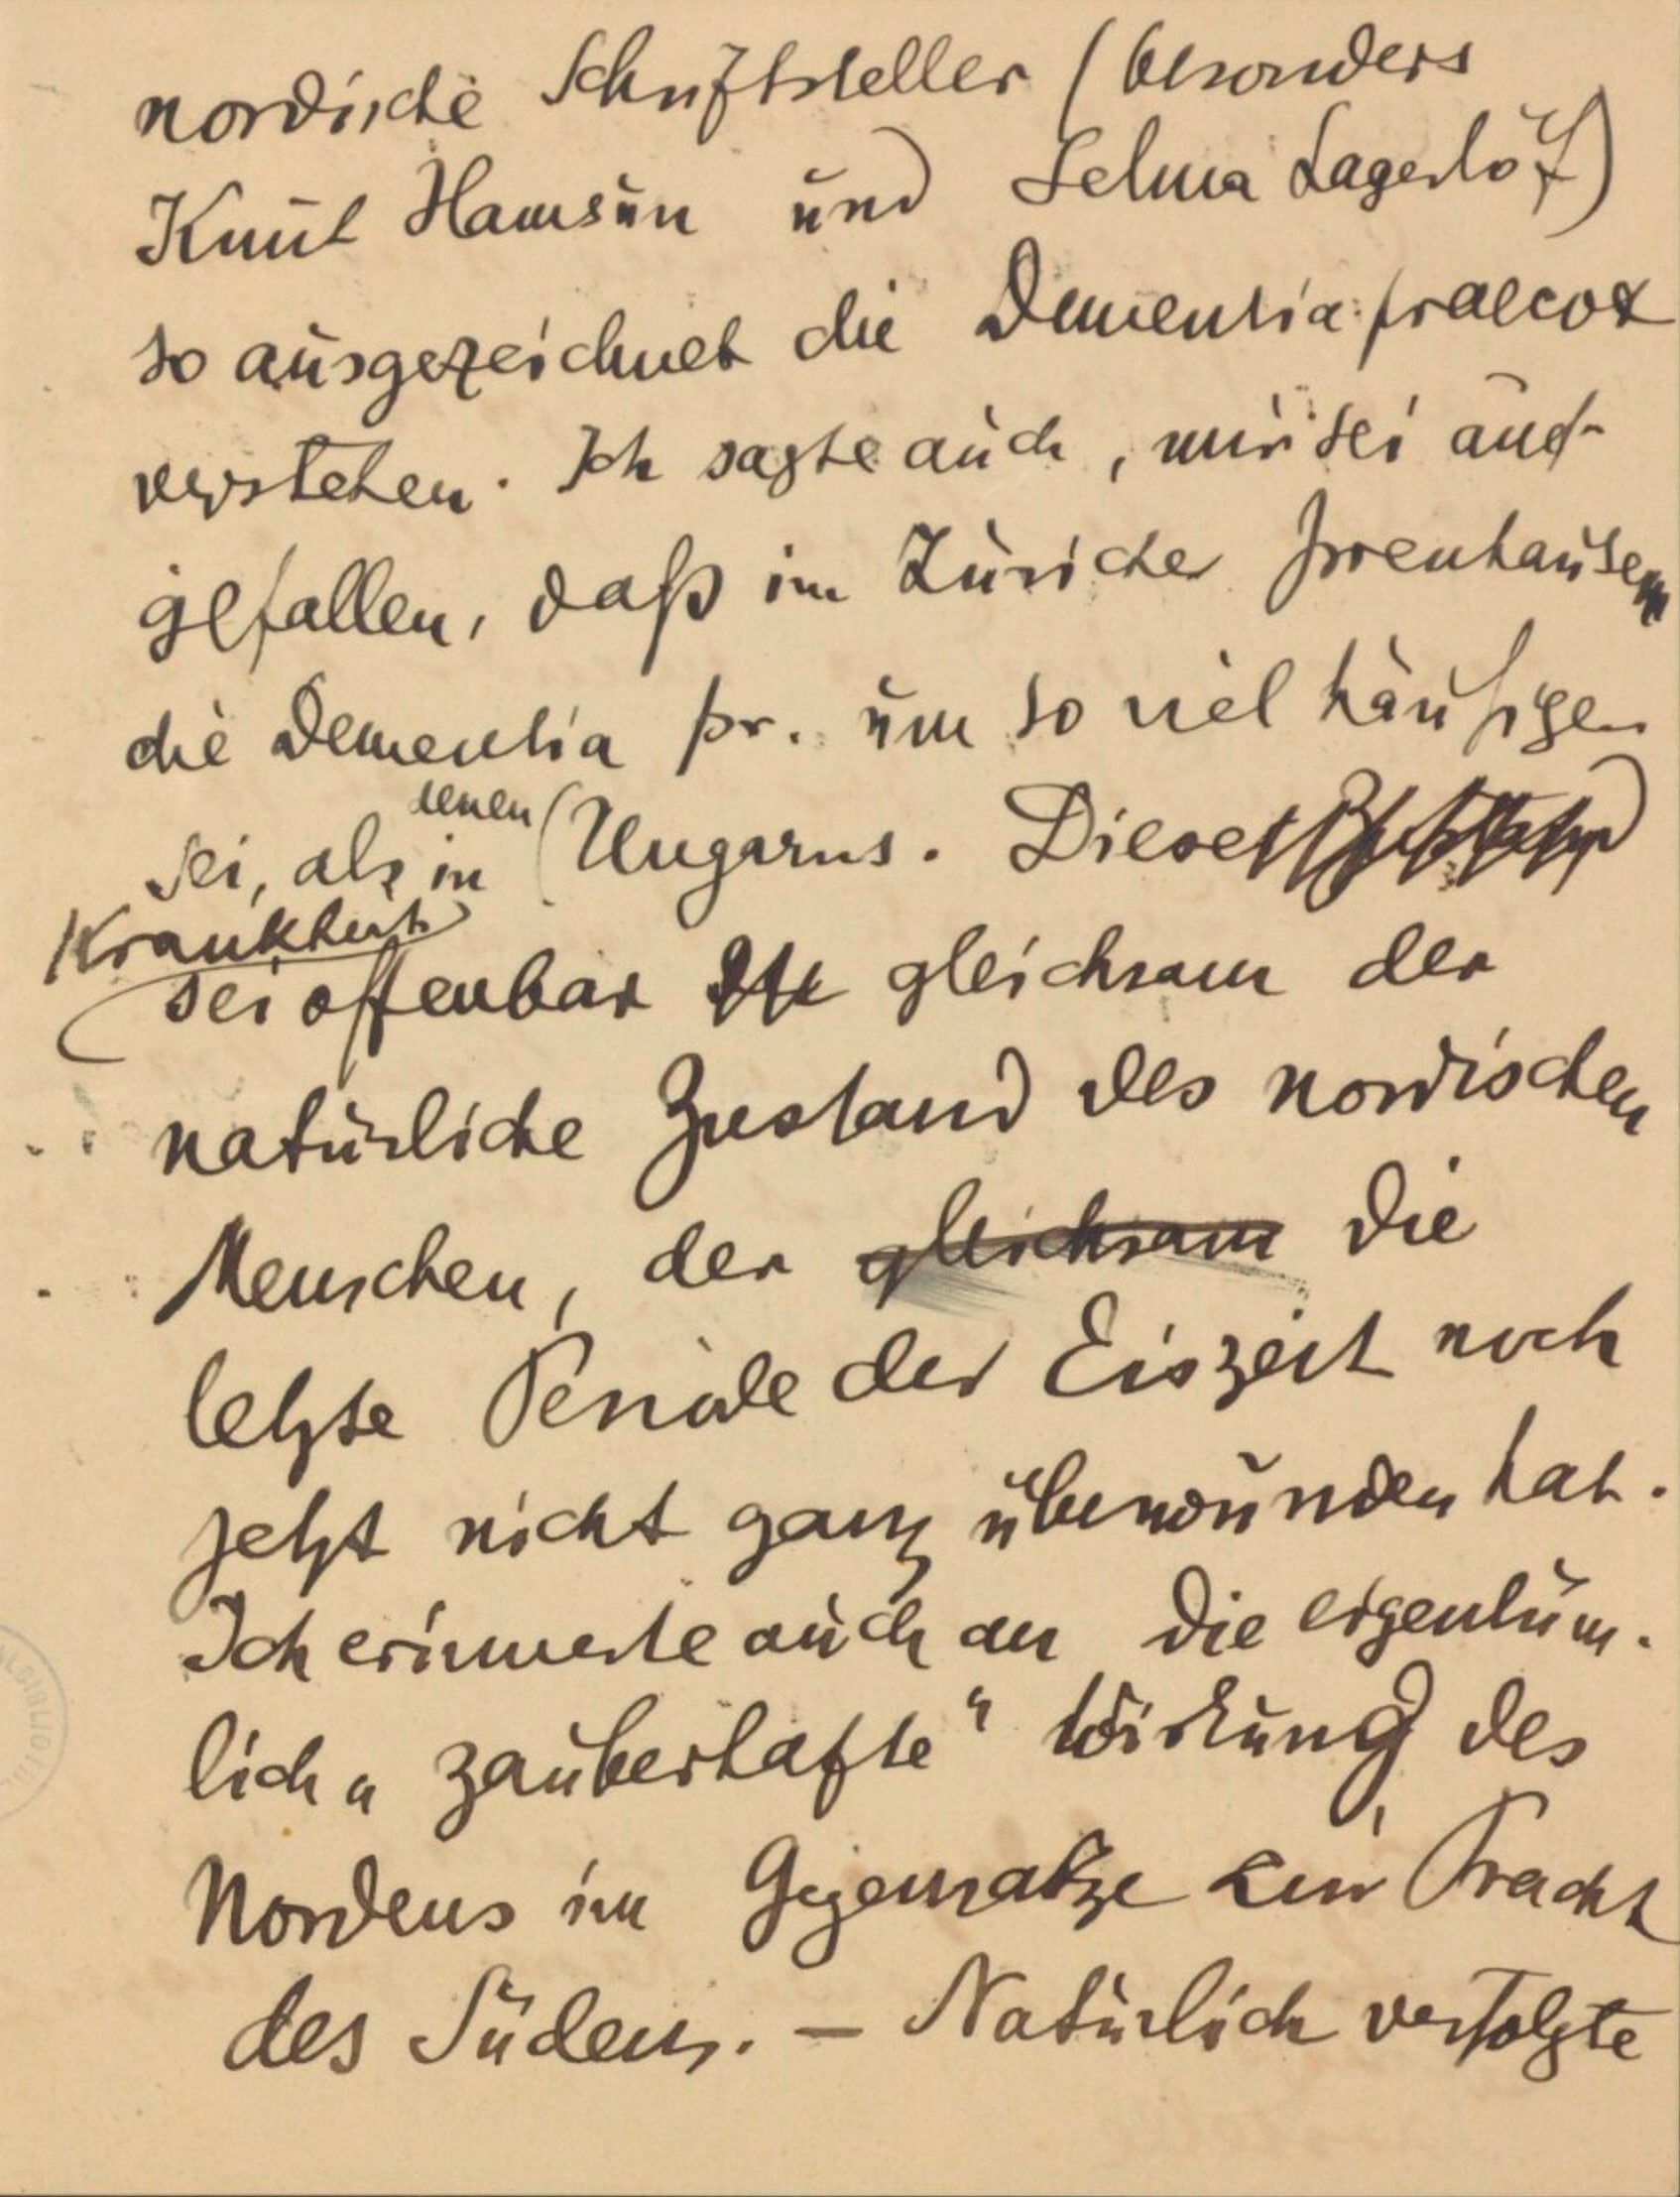 nordische Schriftsteller (besonders
Knut Hamsun und Selma Lagerlöf)
so ausgezeichnet die Dementia praecox
verstehen. Ich sagte auch, mir sei auf-
gefallen, daß im Züricher Irrenhausen
die Dementia pr. um so viel häufiger
sei, als in denen Ungarns. Diese
Krankheit
sei offenbar gleichsam der
natürliche Zustand des nordischen
Menschen, der gleichsam die
letzte Periode der Eiszeit noch
jetzt nicht ganz überwunden hat.
Ich erinnerte auch an die eigentüm-
lich „zauberhafte“ Wirkung des
Nordens im Gegensatze zur Pracht
des Südens. – Natürlich verfolgte